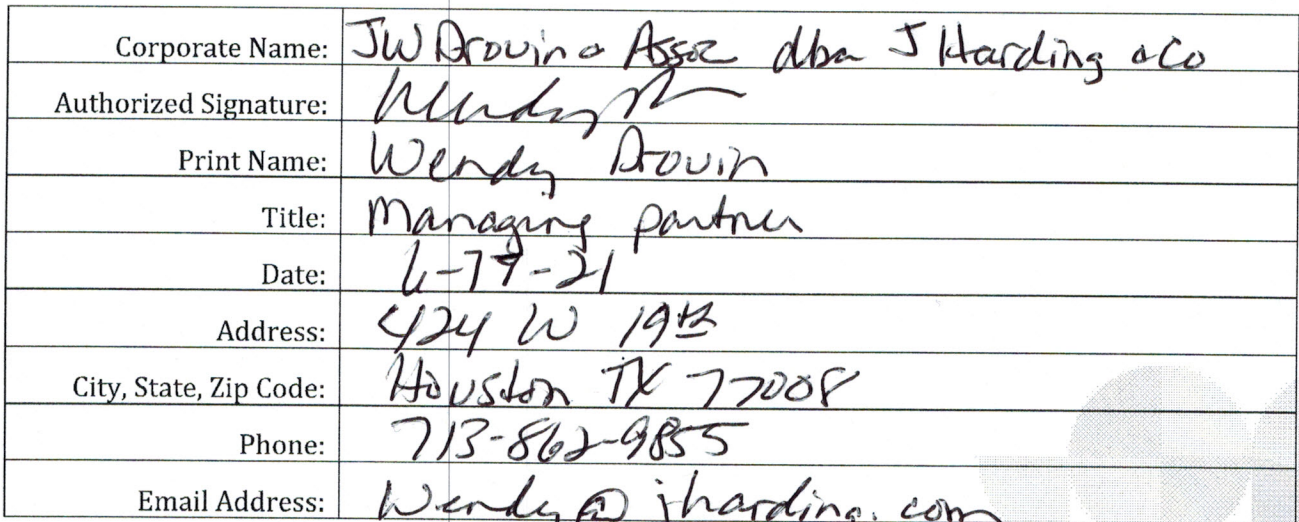 Corporate Name: JW Drouin & Assoc dba J Harding & Co
Authorized Signature:
Print Name: Wendy Drouin
Title: Managing partner
Date:
Address: 424 W 19th
City, State, Zip Code: Houston TX 77008
Phone: 713-862-9855
Email Address: Wendy@jharding.com